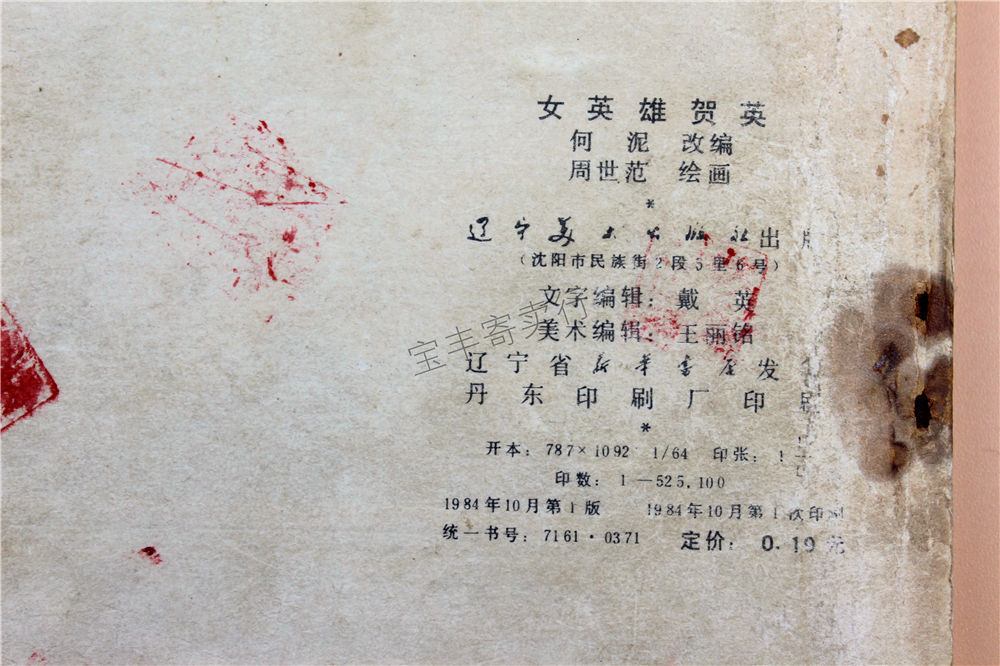 女英雄贺英
何泥 改编
周世范 绘画
*
辽宁美术出版社出版
（沈阳市民族街2段5里6号）
文字编辑：戴英
美术编辑：王丽铭
辽宁省新华书店发
丹东印刷厂印
*
开本：787×1092 1/64 印张：1
印数：1—525,100
1984年10月第1版 1984年10月第1次印刷
统一书号：7161·0371 定价：0.19元
宝丰寄卖行